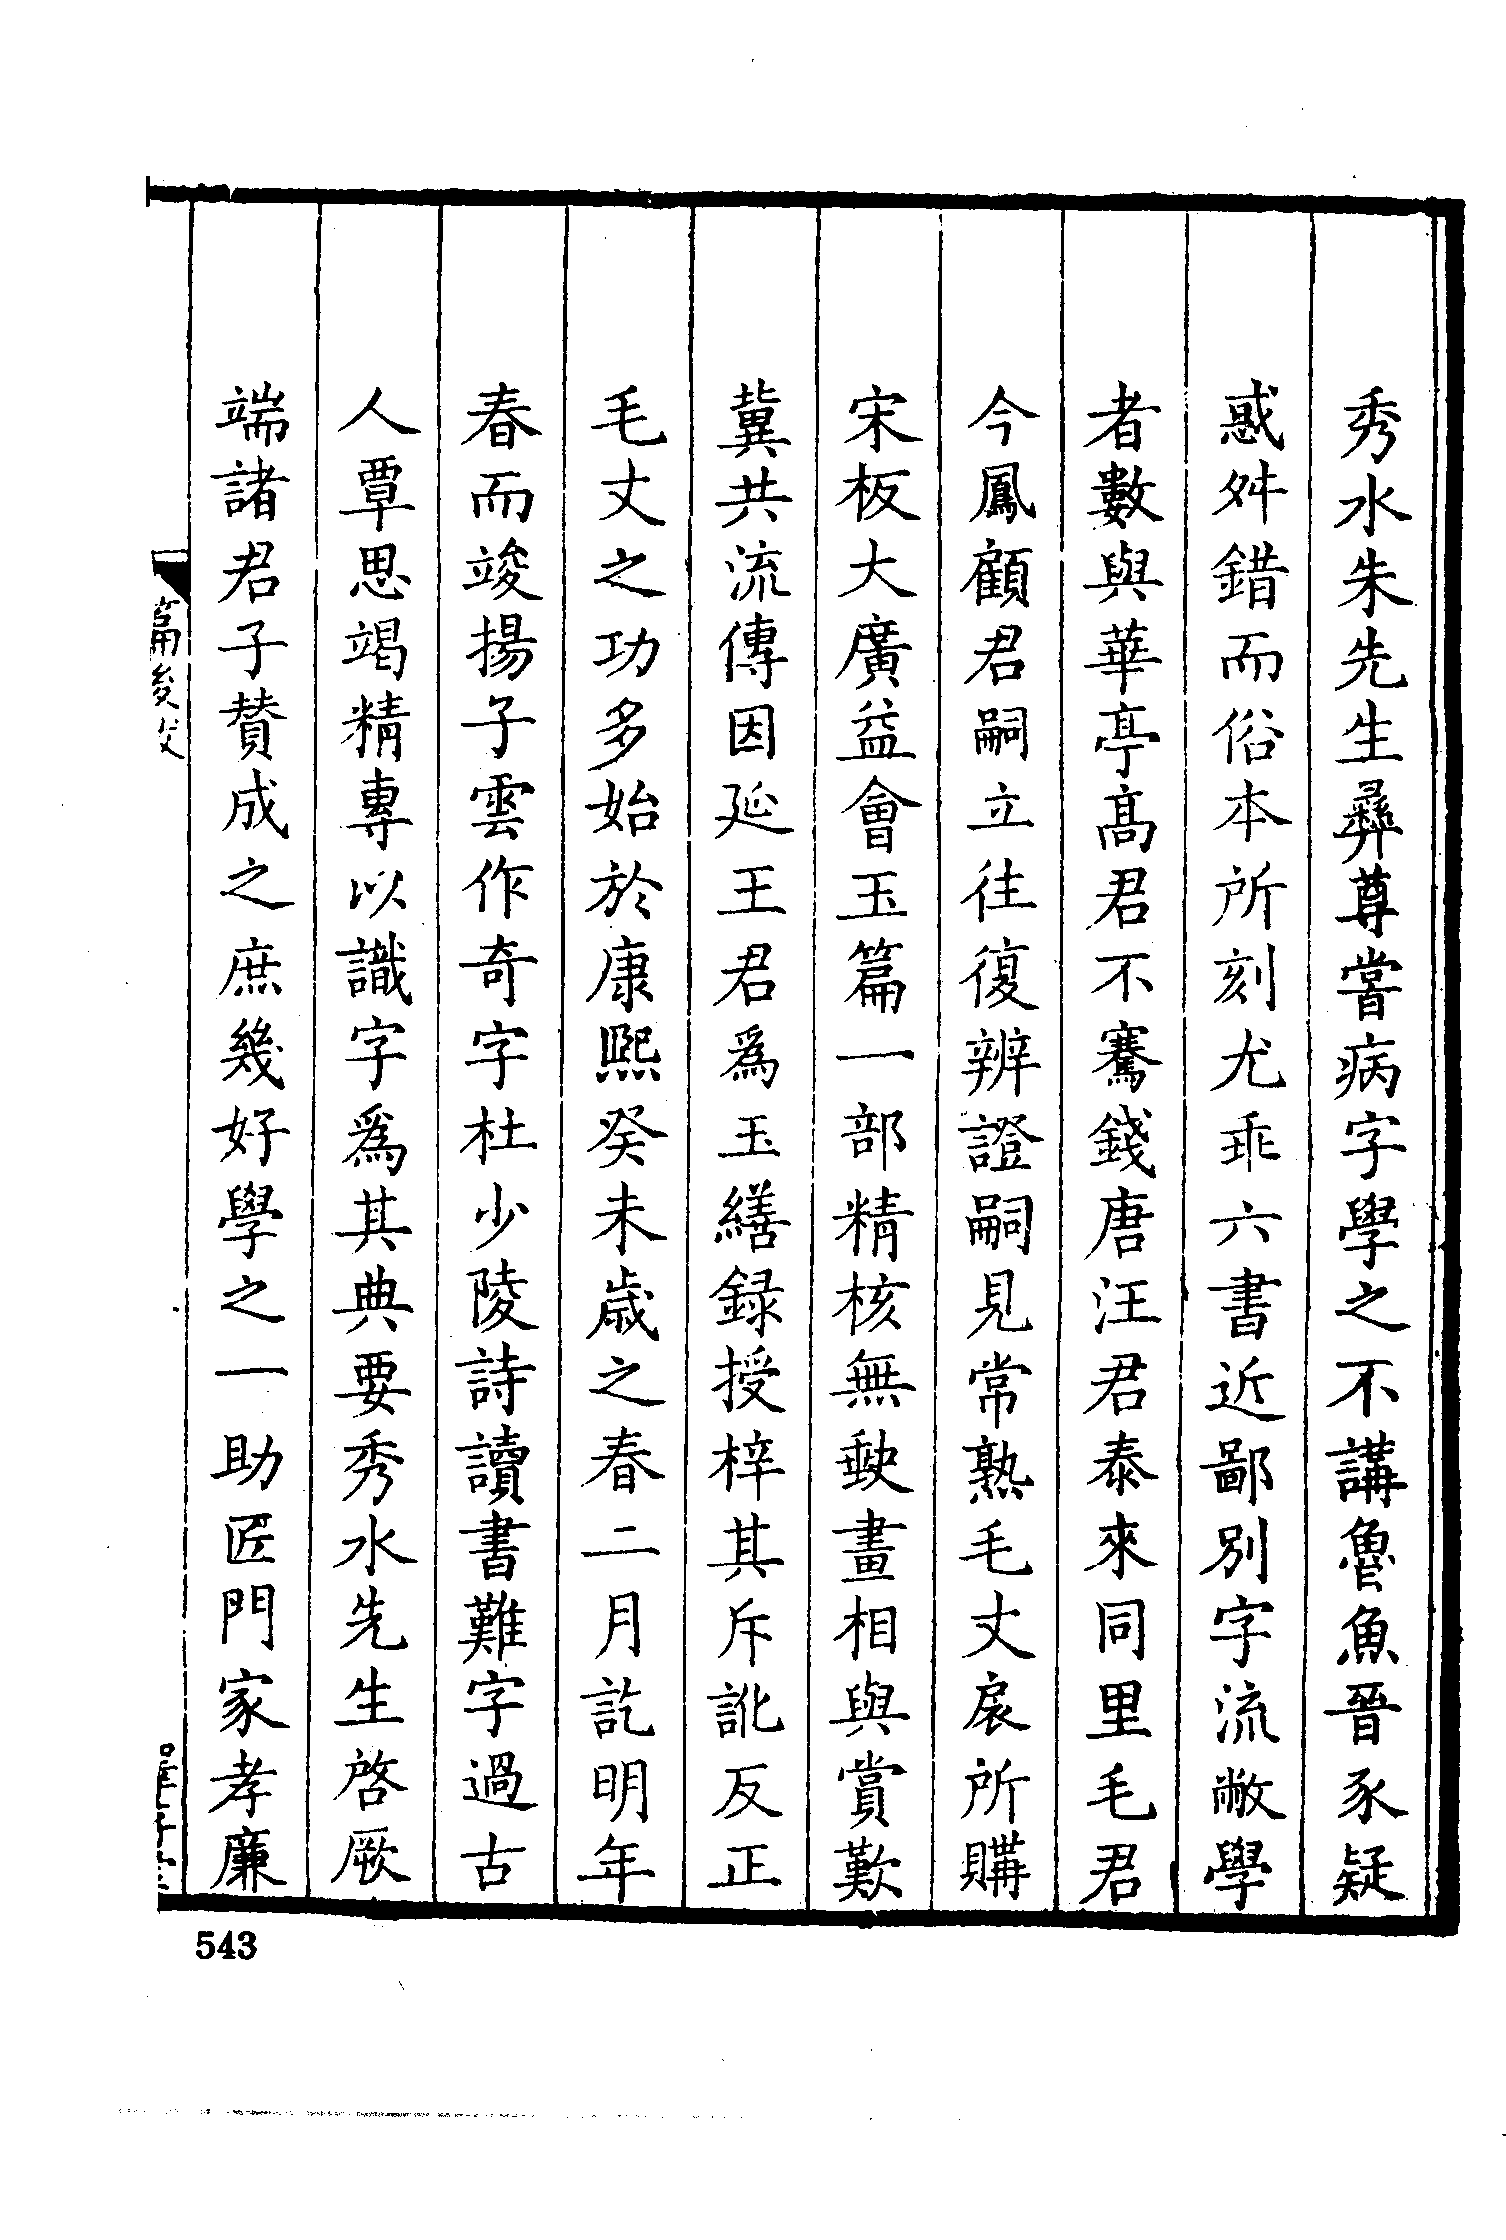 秀水朱先生彝尊嘗病字學之不講魯魚晉豕疑
惑舛錯而俗本所刻尤乖六書近鄙別字流敝學
者數與華亭高君不騫錢唐汪君泰來同里毛君
今鳳顧君嗣立往復辨證嗣見常熟毛丈扆所購
宋板大廣益會玉篇一部精核無缺畫相與賞歎
冀共流傳因延王君爲玉繕録授梓其斥訛反正
毛丈之功多始於康熙癸未歲之春二月訖明年
春而竣揚子雲作奇字杜少陵詩讀書難字過古
人覃思竭精專以識字爲其典要秀水先生啓厥
端諸君子贊成之庶幾好學之一助匠門家孝廉
篇後
543